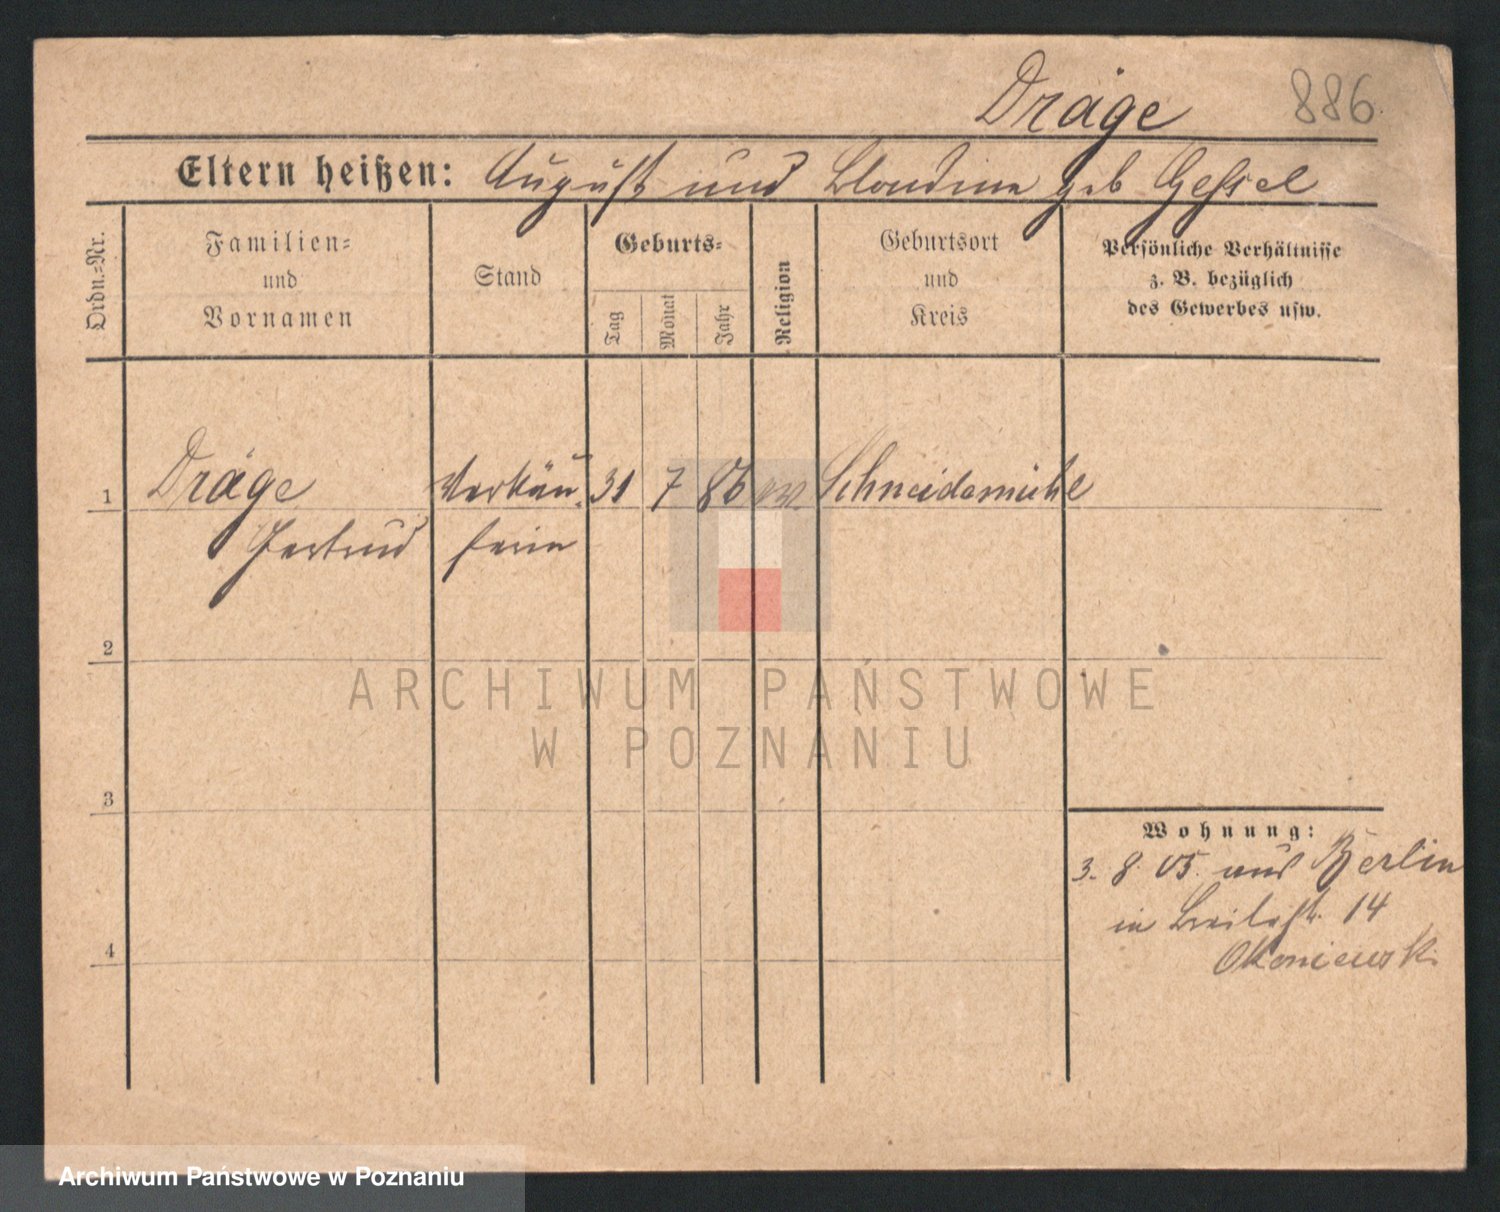 Dräge
886.
Eltern heißen: August und Blondine geb Gessel
Ordn.=Nr.
Familien=
und
Vornamen
Stand
Geburts=
Tag
Monat
Jahr
Religion
Geburtsort
und
Kreis
Persönliche Verhältnisse
z. B. bezüglich
des Gewerbes usw.
1 Dräge Verkäu 31 7 86 ev. Schneidemühl
Gertrud ferin
2
3
4
Wohnung:
3. 8. 05. aus Berlin
in Breitestr. 14
Okoniewski
ARCHIWUM PAŃSTWOWE
W POZNANIU
Archiwum Państwowe w Poznaniu